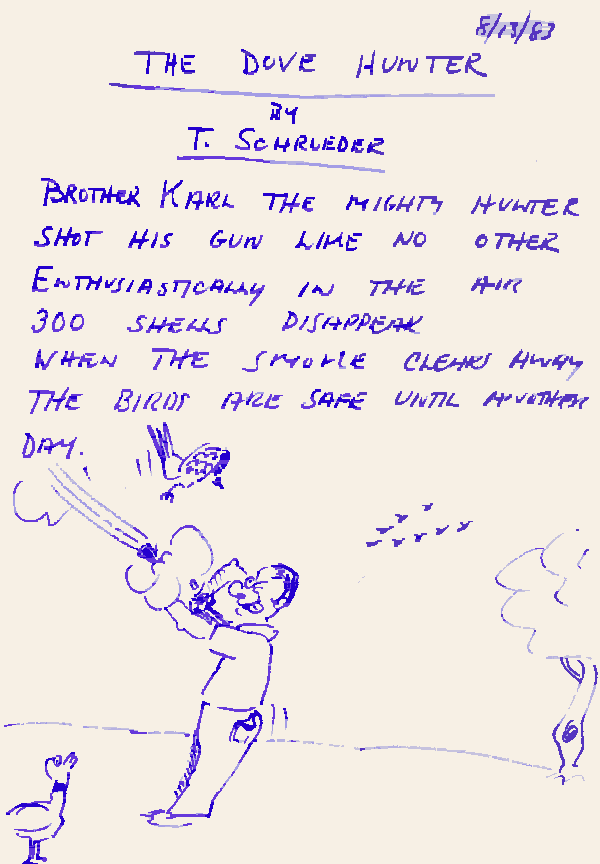 8/13/83
THE DOVE HUNTER
BY
T. SCHRUEDER
BROTHER KARL THE MIGHTY HUNTER
SHOT HIS GUN LIKE NO OTHER
ENTHUSIASTICALLY IN THE AIR
300 SHELLS DISAPPEAR
WHEN THE SMOKE CLEARS AWAY
THE BIRDS ARE SAFE UNTIL ANOTHER
DAY.